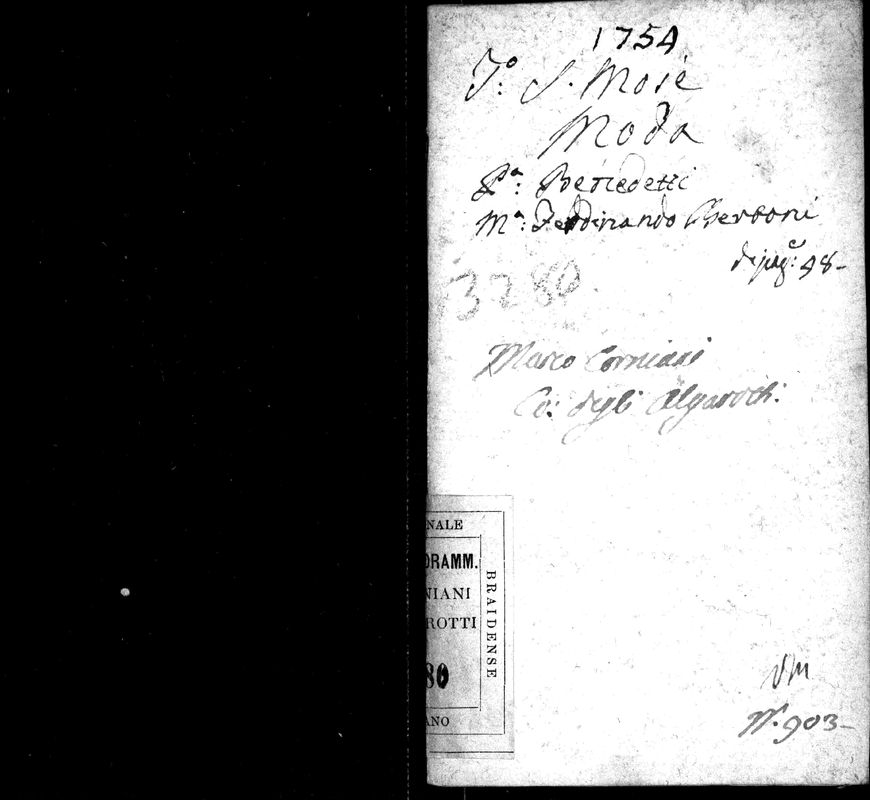 1754
T.º S. Mosè
Moda
P.ª Benedetti
M.ª Ferdinando Bertoni
di pag.e: 48-
3280
Marco Corniani
Co: degli Algarotti.
NALE
DRAMM.
NIANI
ROTTI
80
ANO
BRAIDENSE
VM
Nº. 903-